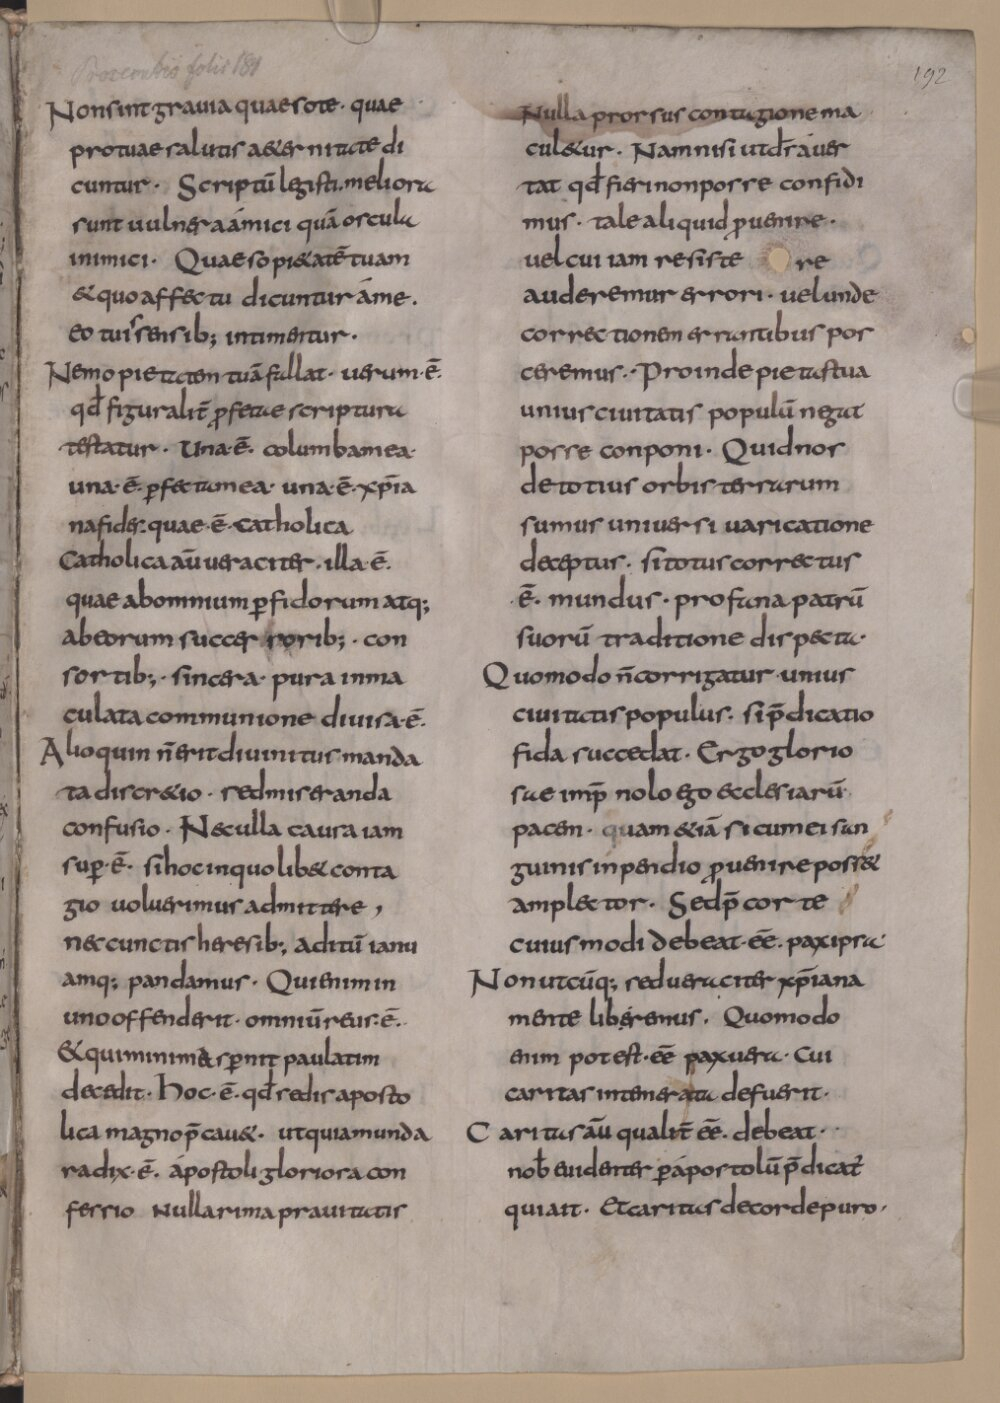 192
Non sint gravia quaeso te · quae
pro tuae salutis aet&ernitate di
cuntur · Scriptū legisti. meliora
sunt uulnera amici quā oscula
inimici · Quaeso pi&atē tuam
& quo affectu dicuntur áme.
eo tuis sensib; intimentur ·
Nemo pietatem tuā fallat · uerum · ē ·
qđ figuralit̄ ꝓfetae scriptura
testatur · Una · ē · columba mea ·
una · ē · ꝑfecta mea · una · ē · xp̄ia
na fides. quae · ē · catholica
Catholica aū ueraciter · illa · ē ·
quae ab omnium ꝑfidorum atq;
ab eorum succes roribus; · con
sortib; · sincera · pura inma
culata communione diuisa · ē ·
Alioquin n̄ erit diuinitus manda
ta discr&io · sed miseranda
confusio · Nec ulla causa iam
suꝑ · ē · si hoc in quolib& conta
gio uoluerimus admittere ,
nec cunctis heresib; aditū ianu
amq; pandamus · Qui enim in
uno offenderit · omniū reus · ē ·
& qui minima spernit paulatim
decedit · Hoc · ē · qđ sedis aposto
lica magnop̄ cau& · ut quia munda
radix · ē · ápostoli gloriosa con
fessio nulla rima prauitatis
Nulla prorsus contagione ma
cul&ur · Nam nisi ut d̄s áuer
tat qđ fieri non posse confidi
mus · tale aliquid ꝓuenire ·
uel cui iam resiste re
auderemur errori · uel unde
correctionem errantibus pos
ceremus · Proinde pietas tua
unius ciuitatis populū negat
posse conponi · Quid nos
de totius orbis terrarum
sumus uniuersi uaricatione
deceptus · si totus correctus
· ē · mundus · profana patrū
suorū traditione dispecta ·
Quomodo n̄ corrigatur unius
ciuitatis populus · si p̄dicatio
fida succedat · Ergo glorio
sae imp̄ nolo ego ecclesiarū
pacem · quam &iā si cum ei san
guinis inpendio ꝓuenire poss&
amplector · Sed p̄cor te
cuius modi debeat · eē · pax ipsa
Non utcūq; sed ueraciter xp̄iana
mente liberemus · Quomodo
enim potest · eē pax uera · Cui
caritas intemerata defuerit ·
Caritas aū qualit̄ eē · debeat ·
nob̄ euidenter ꝑ ápostolū p̄dicat̄
qui ait · Et caritas de corde puro ·